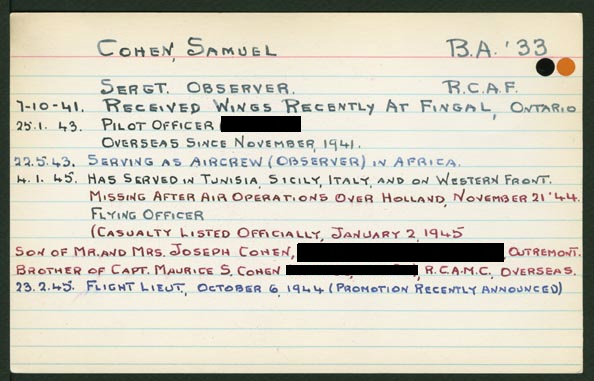 COHEN, SAMUEL B.A. '33
SERGT. OBSERVER. R.C.A.F.
7-10-41. RECEIVED WINGS RECENTLY AT FINGAL, ONTARIO
25.1.43. PILOT OFFICER
OVERSEAS SINCE NOVEMBER, 1941.
22.5.43. SERVING AS AIRCREW (OBSERVER) IN AFRICA.
4.1.45. HAS SERVED IN TUNISIA, SICILY, ITALY, AND ON WESTERN FRONT.
MISSING AFTER AIR OPERATIONS OVER HOLLAND, NOVEMBER 21 '44.
FLYING OFFICER
(CASUALTY LISTED OFFICIALLY, JANUARY 2, 1945
SON OF MR. AND MRS. JOSEPH COHEN, OUTREMONT.
BROTHER OF CAPT. MAURICE S. COHEN R.C.A.M.C., OVERSEAS.
23.2.45. FLIGHT LIEUT., OCTOBER 6, 1944 (PROMOTION RECENTLY ANNOUNCED)